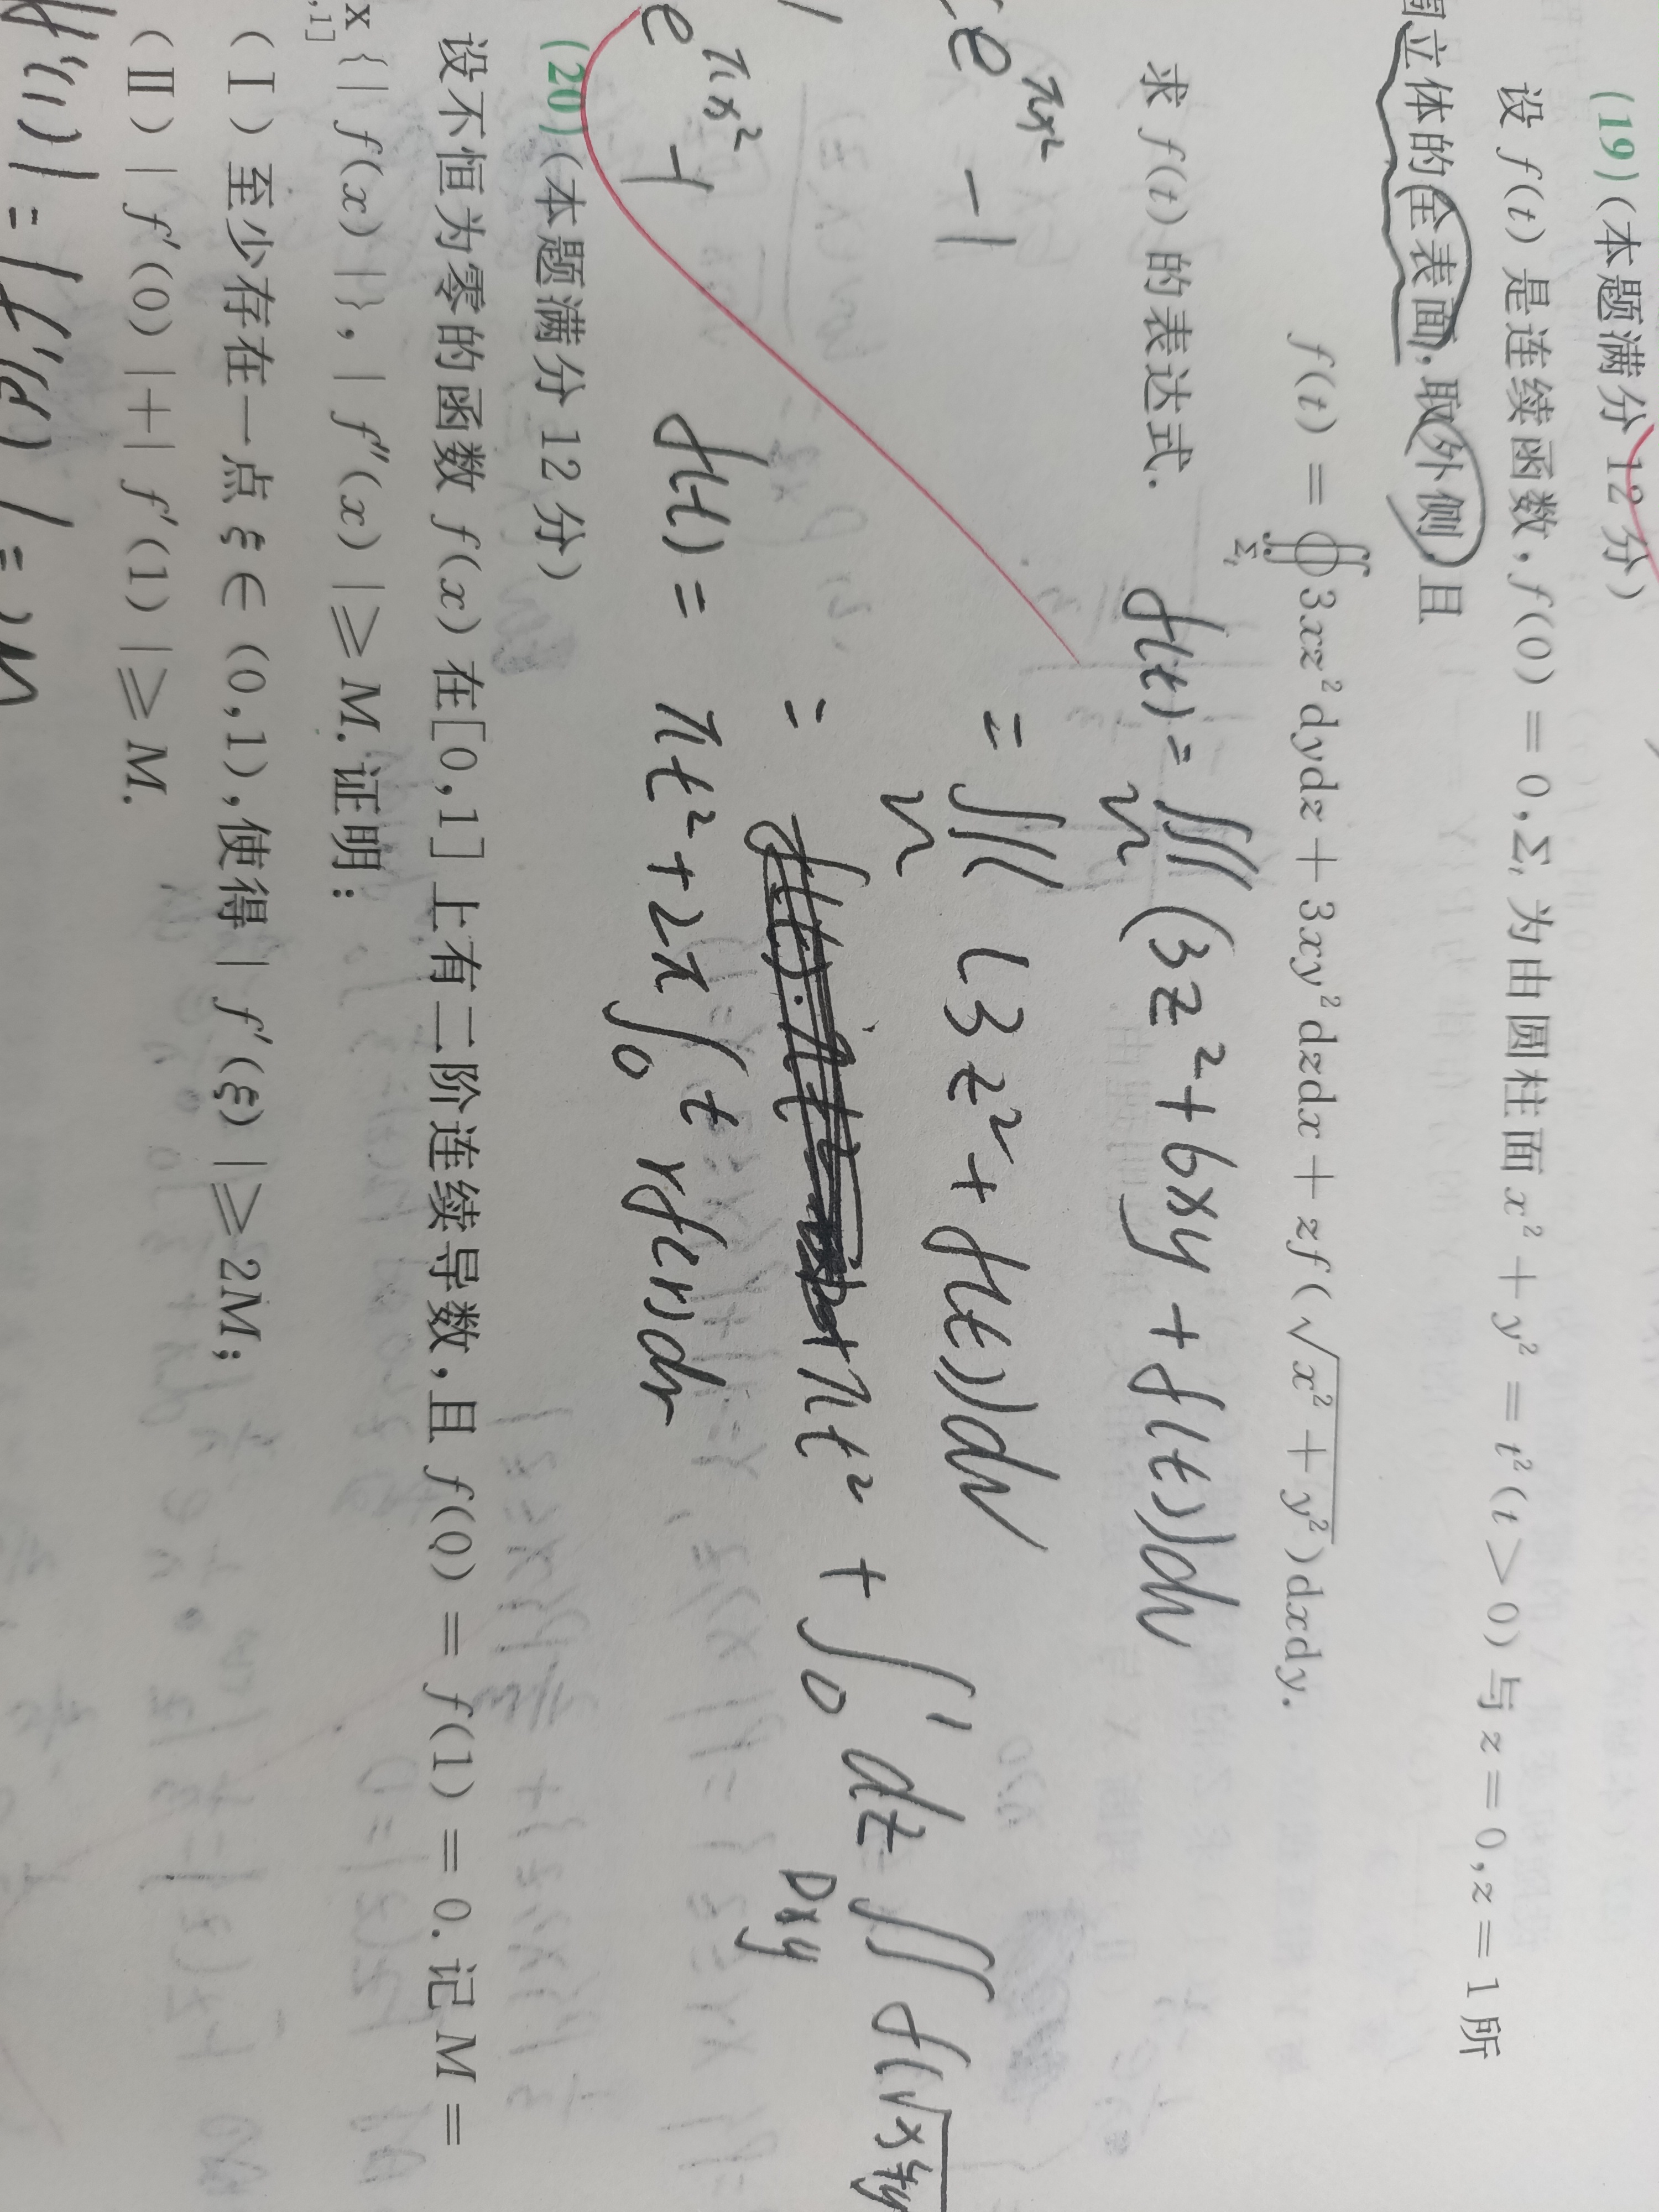 (19)(本题满分 12 分)
设 f(t) 是连续函数, f(0) = 0, Σₜ 为由圆柱面 x² + y² = t² (t > 0) 与 z = 0, z = 1 所
围立体的全表面, 取外侧, 且
f(t) = ∯_Σₜ 3xz²dydz + 3xy²dzdx + zf(√(x² + y²))dxdy.
求 f(t) 的表达式.
f(t) = ∭_Ω (3z² + 6xy + f(t))dv
e^{πx²} - 1
= ∭_Ω (3z² + f(t))dv
= πt² + ∫₀¹ dz ∬_Dxy f(√x²+y
e^{πx²}
f(t) = πt² + 2π∫₀ᵗ rf(r)dr
(20)(本题满分 12 分)
设不恒为零的函数 f(x) 在[0,1] 上有二阶连续导数, 且 f(0) = f(1) = 0. 记 M =
x{| f(x) |}, | f″(x) | ≥ M. 证明:
,1]
(Ⅰ) 至少存在一点 ξ ∈ (0,1), 使得 | f′(ξ) | ≥ 2M;
(Ⅱ) | f′(0) | + | f′(1) | ≥ M.